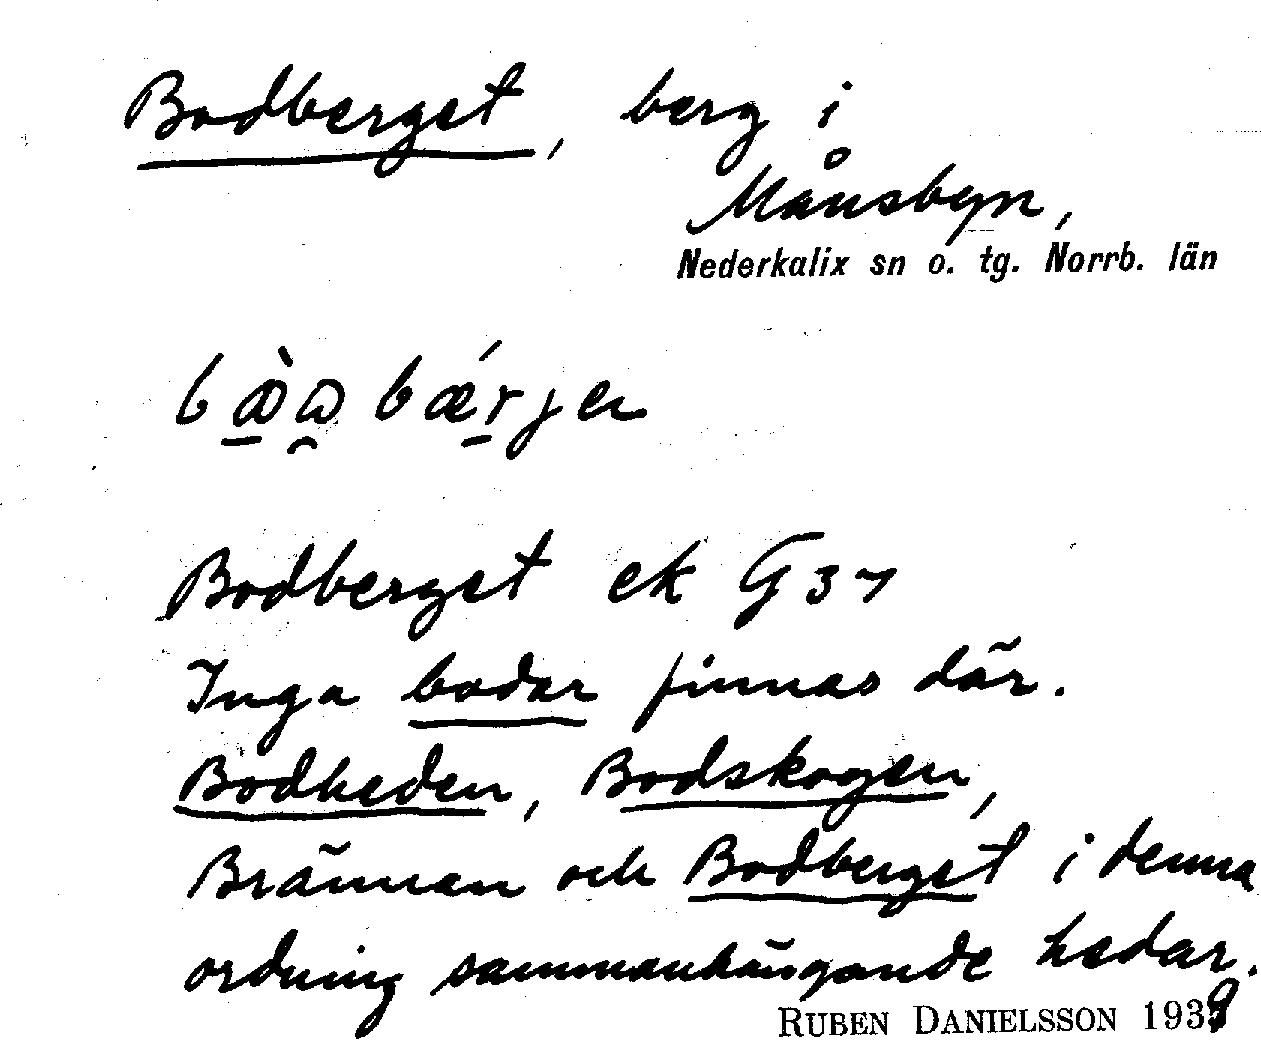 Bodberget, berg i
Månsbyn,
Nederkalix sn o. tg. Norrb. län
Bodberget ek G 37
Inga bodar finnas där.
Bodheden, Bodskogen,
Brännan och Bodberget i denna
ordning sammanhängande hedar.
RUBEN DANIELSSON 1939